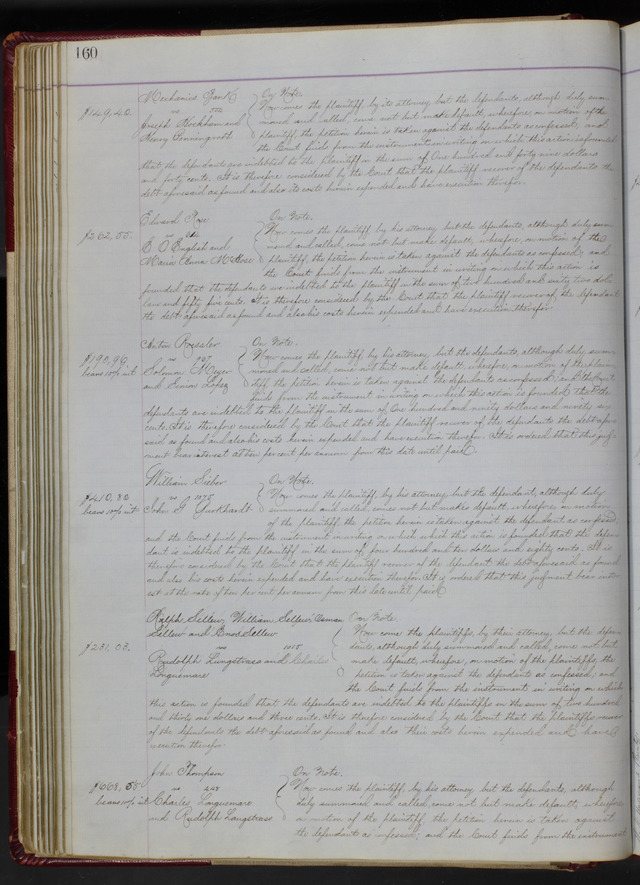 160
Mechanics Bank } On Note.
$149,40. vs Now comes the plaintiff, by its attorney, but the defendants, although duly sum-
Joseph and moned and called, come not but make default, wherefore, on motion of the
Henry plaintiff, the petition herein is taken against the defendants as confessed, and
the Court finds from the instrument in writing on which this action is founded
that the defendants are indebted to the plaintiff in the sum of One hundred and forty nine dollars
and forty cents. It is therefore considered by the Court that the plaintiff recover of the defendants the
debt aforesaid as found and also its costs herein expended and have execution therefor.
Edward Rose } On Note.
$262,55. vs Now comes the plaintiff by his attorney but the defendants, although duly sum
English and moned and called, come not but make default, wherefore, on motion of the
Maria Anna plaintiff, the petition herein is taken against the defendants as confessed, and
the Court finds from the instrument in writing on which this action is
founded that the defendants are indebted to the plaintiff in the sum of two hundred and sixty two dol-
lars and fifty five cents. It is therefore considered by the Court that the plaintiff recover of the defendants
the debt aforesaid as found and also his costs herein expended and have execution therefor
Anton Roessler } On Note.
$190,96 vs 907 Now comes the plaintiff, by his attorney, but the defendants, although duly sum-
bears 10% int Solomon Meyer moned and called, come not but make default, wherefore, on motion of the plain-
and Lopez tiff the petition herein is taken against the defendants as confessed, and the Court
finds from the instrument in writing on which this action is founded that the
defendants are indebted to the plaintiff in the sum of One hundred and ninety dollars and ninety six
cents. It is therefore considered by the Court that the plaintiff recover of the defendants the debt afore-
said as found and also his costs herein expended and have execution therefor. It is ordered that this judg-
ment bear interest at ten per cent per annum from this date until paid.
William Sieber } On Note.
$410,80 vs 1075 Now comes the plaintiff, by his attorney, but the defendant, although duly
bears 10% int John G Burkhardt summoned and called, comes not but makes default, wherefore, on motion
of the plaintiff the petition herein is taken against the defendant as confessed
and the Court finds from the instrument in writing on which this action is founded that the defen-
dant is indebted to the plaintiff in the sum of four hundred and ten dollars and eighty cents. It is
therefore considered by the Court that the plaintiff recover of the defendant the debt aforesaid as found
and also his costs herein expended and have execution therefor. It is ordered that this judgment bear inter-
est at the rate of ten per cent per annum from this date until paid
Ralph Sellew, William Sellew, Osman On Note.
Sellew and Enos Sellew } Now come the plaintiffs, by their attorney, but the defen-
$231,03. vs 1015 dants, although duly summoned and called, come not but
Rudolph Lungstrass and Charles make default, wherefore, on motion of the plaintiffs, the
Longuemare petition is taken against the defendants as confessed, and
the Court finds from the instrument in writing on which
this action is founded that the defendants are indebted to the plaintiffs in the sum of two hundred
and thirty one dollars and three cents. It is therefore considered by the Court that the plaintiffs recover
of the defendants the debt aforesaid as found and also their costs herein expended and have
execution therefor.
John Thompson } On Note.
$668,55 vs 228 Now comes the plaintiff, by his attorney, but the defendants, although
bears 10% int Charles Longuemare duly summoned and called, come not but make default, wherefore
and Rudolph Lungstrass on motion of the plaintiff, the petition herein is taken against
the defendants as confessed; and the Court finds from the instrument